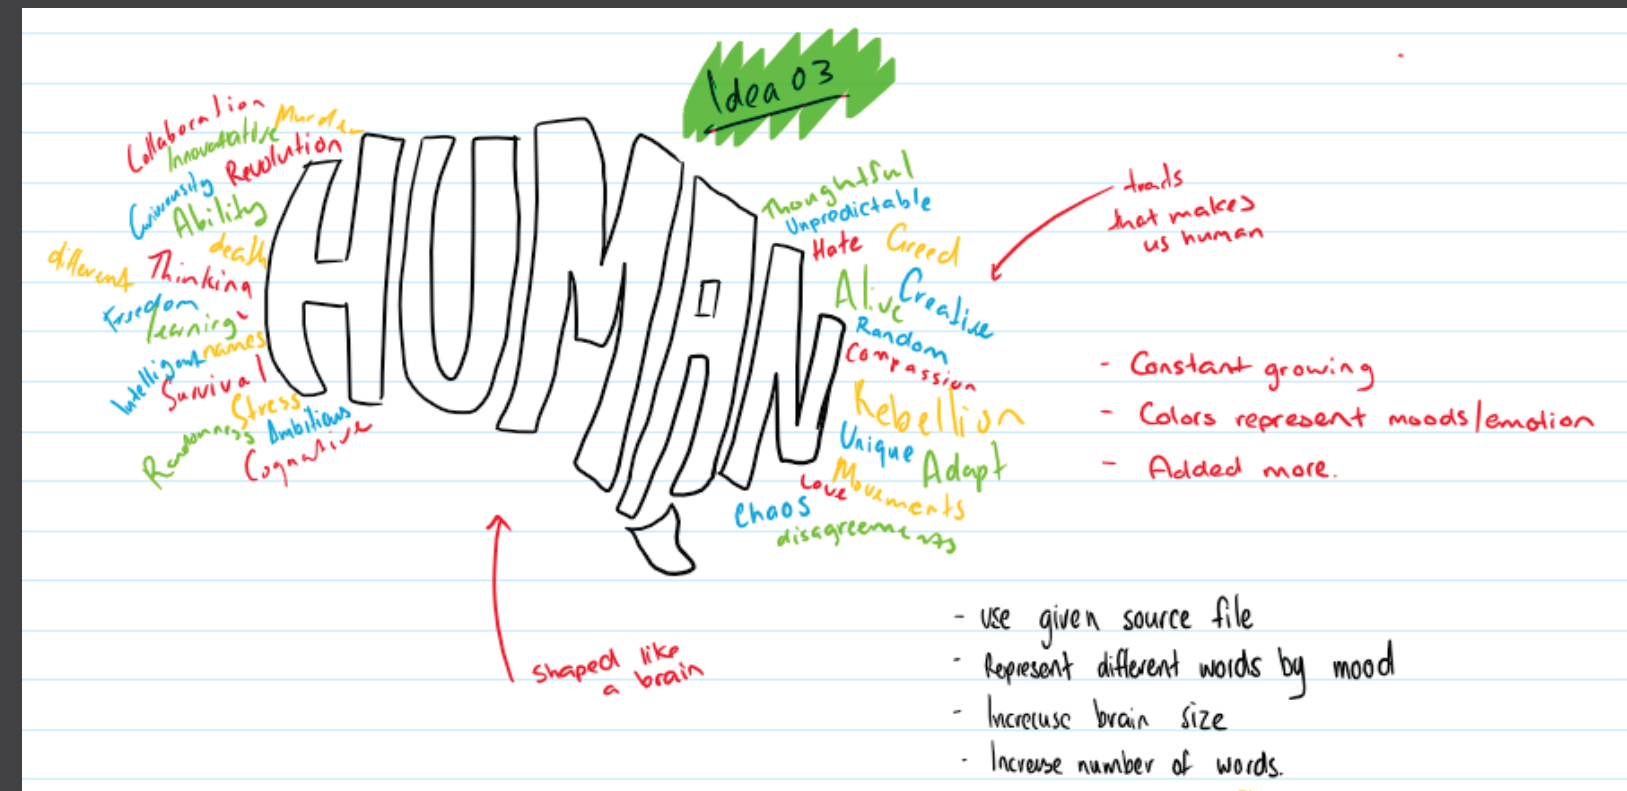 Idea 03
Collaboration
Murder
Innovatative
Revolution
Curiousity
Ability
death
different
Thinking
Freedom
learning
names
Intelligent
Survival
Stress
Ambitious
Randomness
Cognative
HUMAN
Thoughtful
Unpredictable
Hate
Greed
Alive
Creative
Random
Compassion
Rebellion
Unique
Adapt
Love
Movements
Chaos
disagreements
that makes
us human
- Constant growing
- Colors represent moods/emotion
- Added more.
Shaped like
a brain
- use given source file
- Represent different words by mood
- Increase brain size
- Increase number of words.